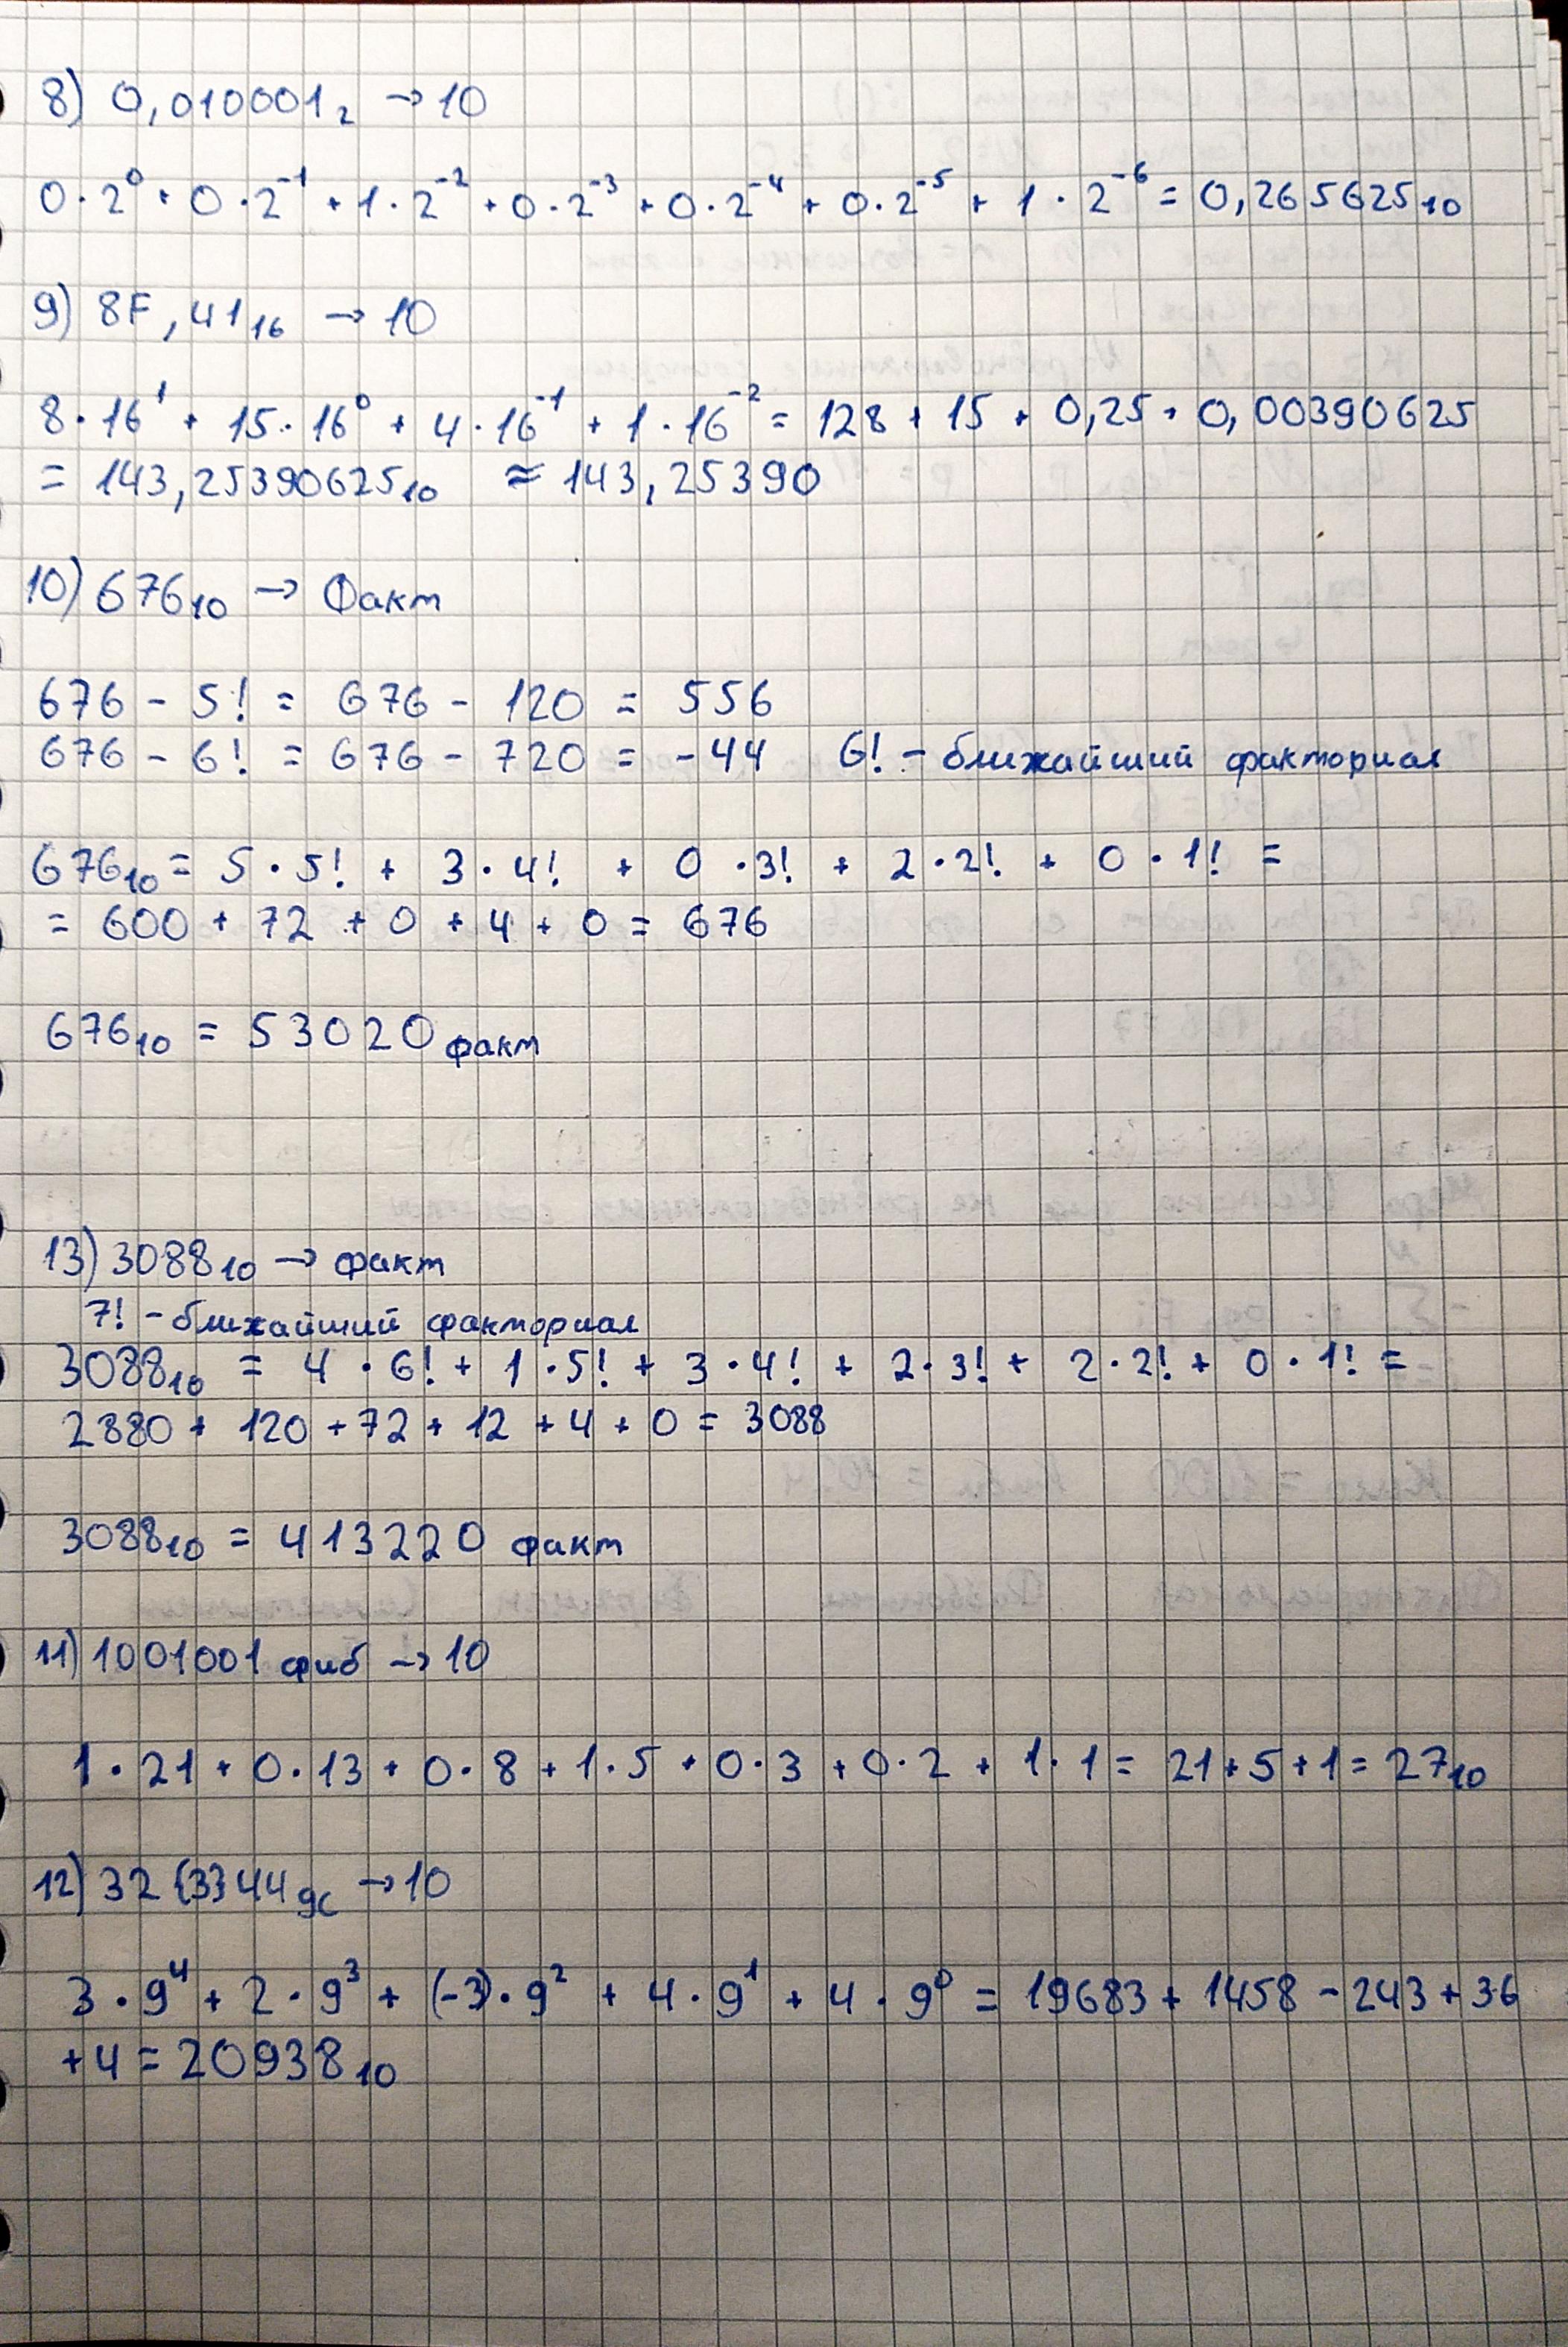 8) 0,010001₂ → 10
0·2⁰ + 0·2⁻¹ + 1·2⁻² + 0·2⁻³ + 0·2⁻⁴ + 0·2⁻⁵ + 1·2⁻⁶ = 0,265625₁₀
9) 8F,41₁₆ → 10
8·16¹ + 15·16⁰ + 4·16⁻¹ + 1·16⁻² = 128 + 15 + 0,25 + 0,00390625
= 143,25390625₁₀ ≈ 143,25390
10) 676₁₀ → Факт
676 - 5! = 676 - 120 = 556
676 - 6! = 676 - 720 = -44 6! - ближайший факториал
676₁₀ = 5·5! + 3·4! + 0·3! + 2·2! + 0·1! =
= 600 + 72 + 0 + 4 + 0 = 676
676₁₀ = 53020 факт
13) 3088₁₀ → факт
7! - ближайший факториал
3088₁₀ = 4·6! + 1·5! + 3·4! + 2·3! + 2·2! + 0·1! =
2880 + 120 + 72 + 12 + 4 + 0 = 3088
3088₁₀ = 413220 факт
11) 1001001 фиб → 10
1·21 + 0·13 + 0·8 + 1·5 + 0·3 + 0·2 + 1·1 = 21 + 5 + 1 = 27₁₀
12) 32{3}44 9с → 10
3·9⁴ + 2·9³ + (-3)·9² + 4·9¹ + 4·9⁰ = 19683 + 1458 - 243 + 36
+ 4 = 20938₁₀